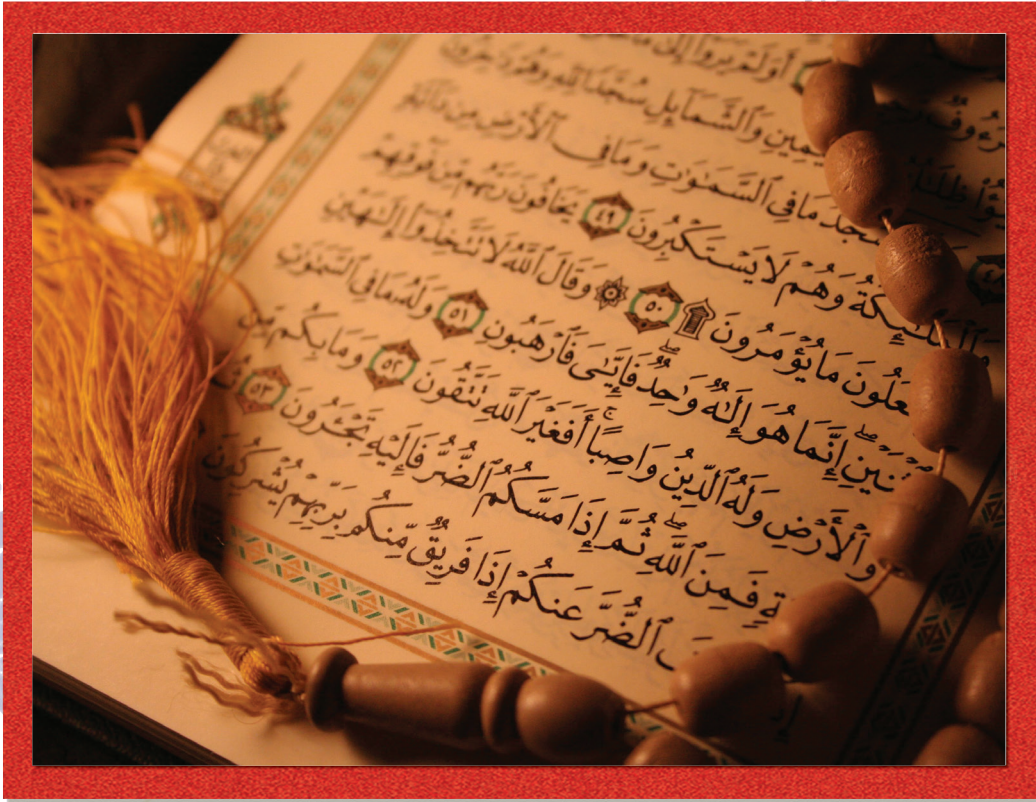 أَوَلَمْ يَرَوْا۟ إِلَىٰ
وَٱلشَّمَآئِلِ سُجَّدًا لِّلَّهِ وَهُمْ دَٰخِرُونَ
٤٨ مَا فِى ٱلسَّمَٰوَٰتِ وَمَا فِى ٱلْأَرْضِ مِن دَآبَّةٍ
وَٱلْمَلَٰٓئِكَةُ وَهُمْ لَا يَسْتَكْبِرُونَ ٤٩ يَخَافُونَ رَبَّهُم مِّن فَوْقِهِمْ
مَا يُؤْمَرُونَ ۩ ٥٠ ۞ وَقَالَ ٱللَّهُ لَا تَتَّخِذُوٓا۟ إِلَٰهَيْنِ
ٱثْنَيْنِ ۖ إِنَّمَا هُوَ إِلَٰهٌ وَٰحِدٌ ۖ فَإِيَّٰىَ فَٱرْهَبُونِ ٥١ وَلَهُۥ مَا فِى ٱلسَّمَٰوَٰتِ
وَٱلْأَرْضِ وَلَهُ ٱلدِّينُ وَاصِبًا ۚ أَفَغَيْرَ ٱللَّهِ تَتَّقُونَ ٥٢ وَمَا بِكُم مِّن
فَمِنَ ٱللَّهِ ۖ ثُمَّ إِذَا مَسَّكُمُ ٱلضُّرُّ فَإِلَيْهِ تَجْـَٔرُونَ ٥٣
ٱلضُّرَّ عَنكُمْ إِذَا فَرِيقٌ مِّنكُم بِرَبِّهِمْ يُشْرِكُونَ